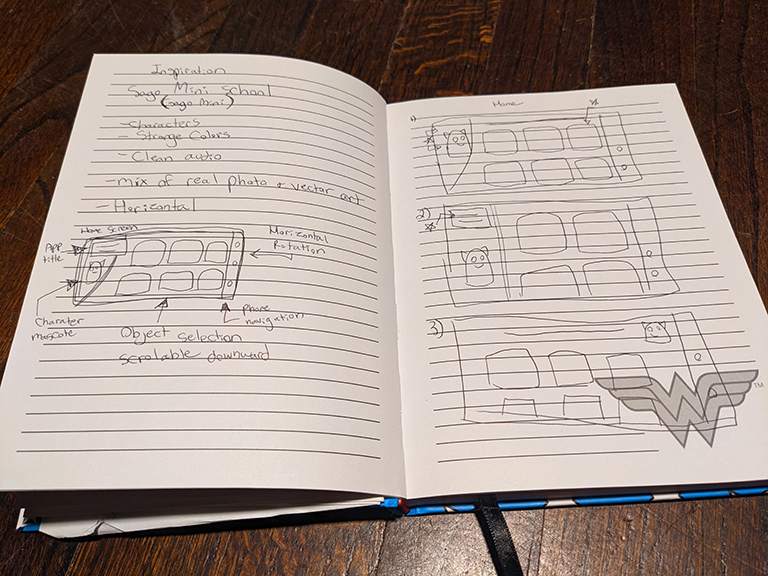 Inspiration
Sago Mini School
(Sago Mini)
- Characters
- Strange Colors
- Clean audio
- mix of real photo + vector art
- Horizontal
Home Screen
App title
Horizontal Rotation
Charater mascote
Object selection
scrolable downward
Phone navigation
Home
1)
2)
3)
TM